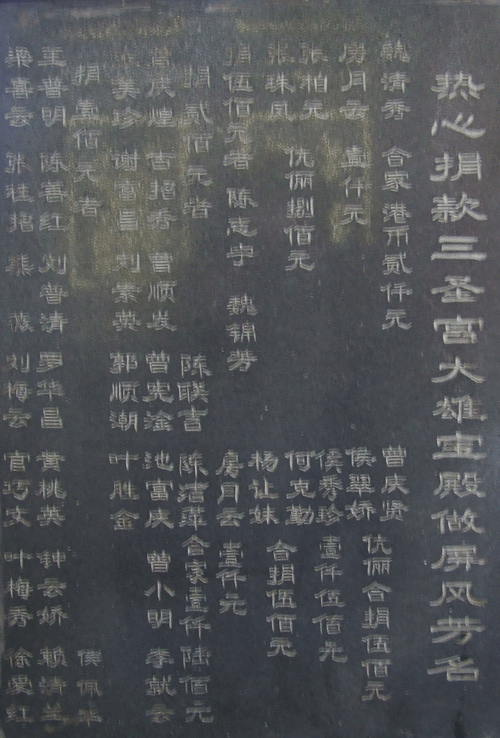 热心捐款三圣宫大雄宝殿做屏风芳名
魏清秀 合家港币贰仟元 曾庆贤
伉俪合捐伍佰元
房月云 壹仟元 侯翠娇
张柏元 侯秀珍 壹仟伍佰元
伉俪捌佰元 何克勤
张珠凤 合捐伍佰元
杨让妹
捐伍佰元者 陈志宇 魏锦芳 房月云 壹仟元
捐贰佰元者 陈联吉 陈洁萍合家壹仟陆佰元
曾庆煌 古招秀 曹顺发 曾宪淦 池富庆 曾小明 李就云
张美珍 谢富昌 刘景英 郭顺潮 叶胜金
捐壹佰元者 侯佩
王普明 陈菩红 刘普清 罗华昌 黄桃英 钟云娇 赖清兰
梁喜云 张桂招 熊薇 刘梅云 官巧文 叶梅秀 徐爱红